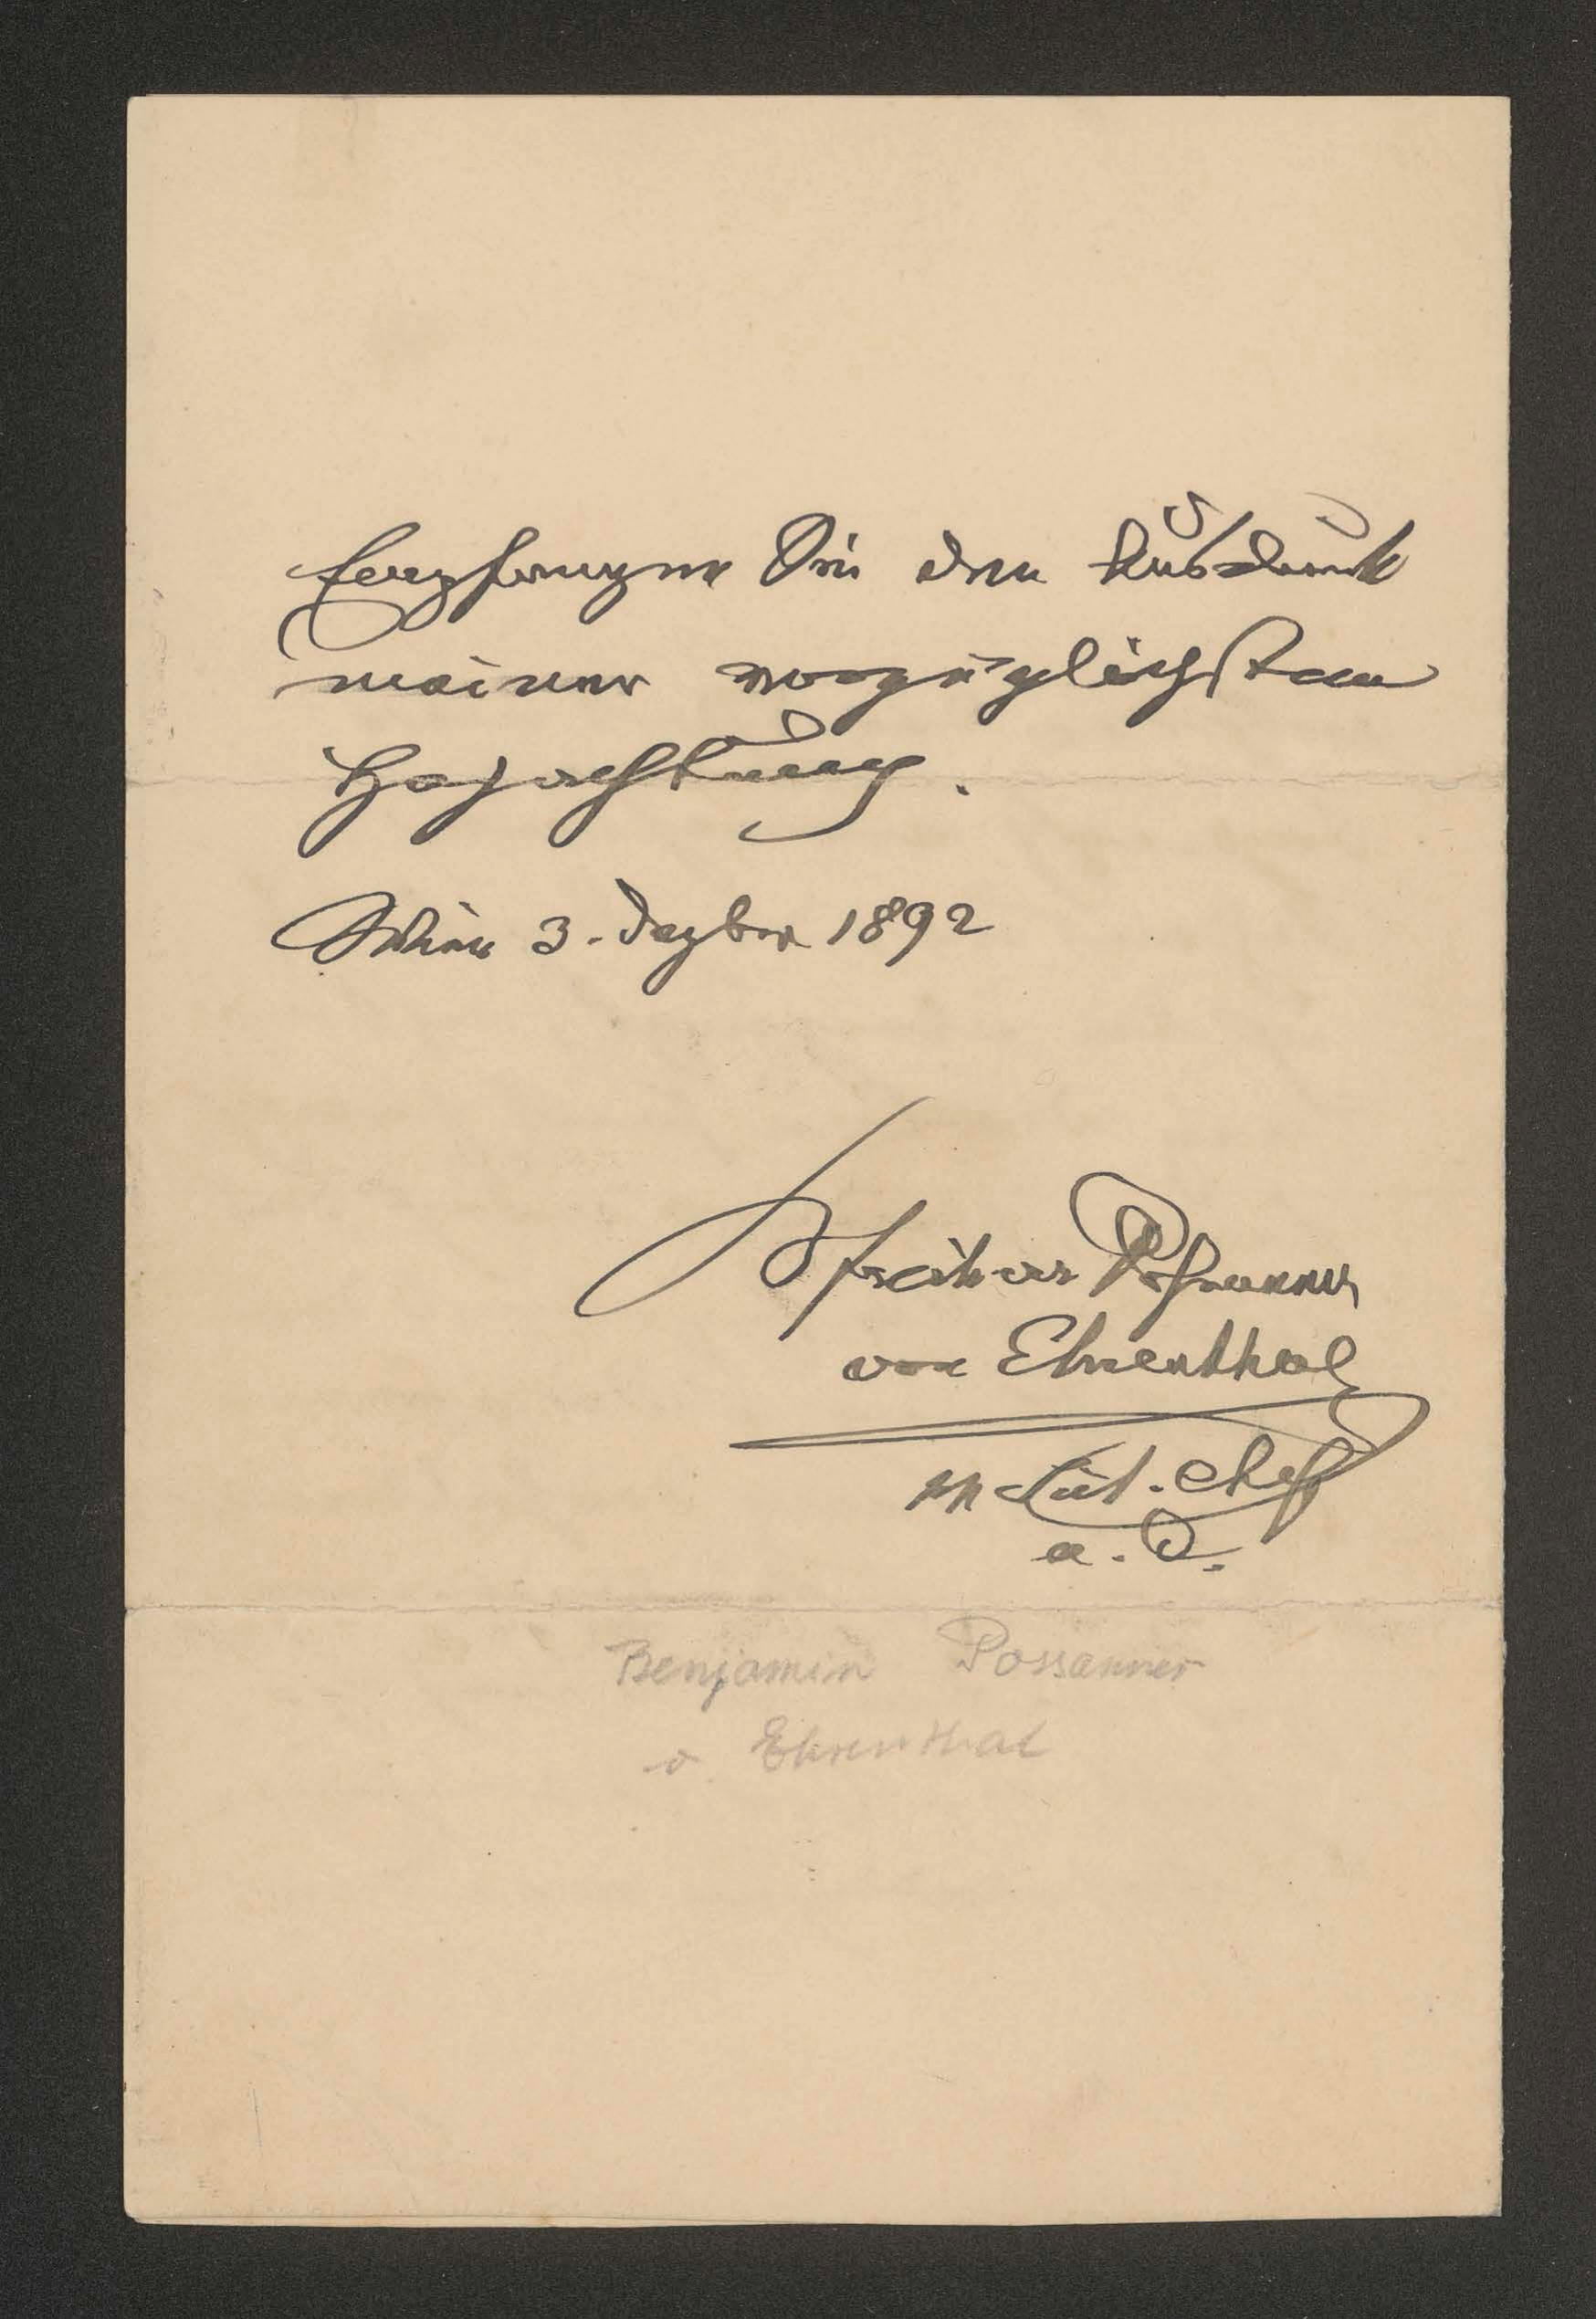 Empfangen Sie den Ausdruck
meiner vorzüglichsten
Hochachtung.
Wien 3. Dezber 1892
Freiherr Possanner
von Ehrenthal
Sect. Chef
a. D.
Benjamin Possanner
v. Ehrenthal